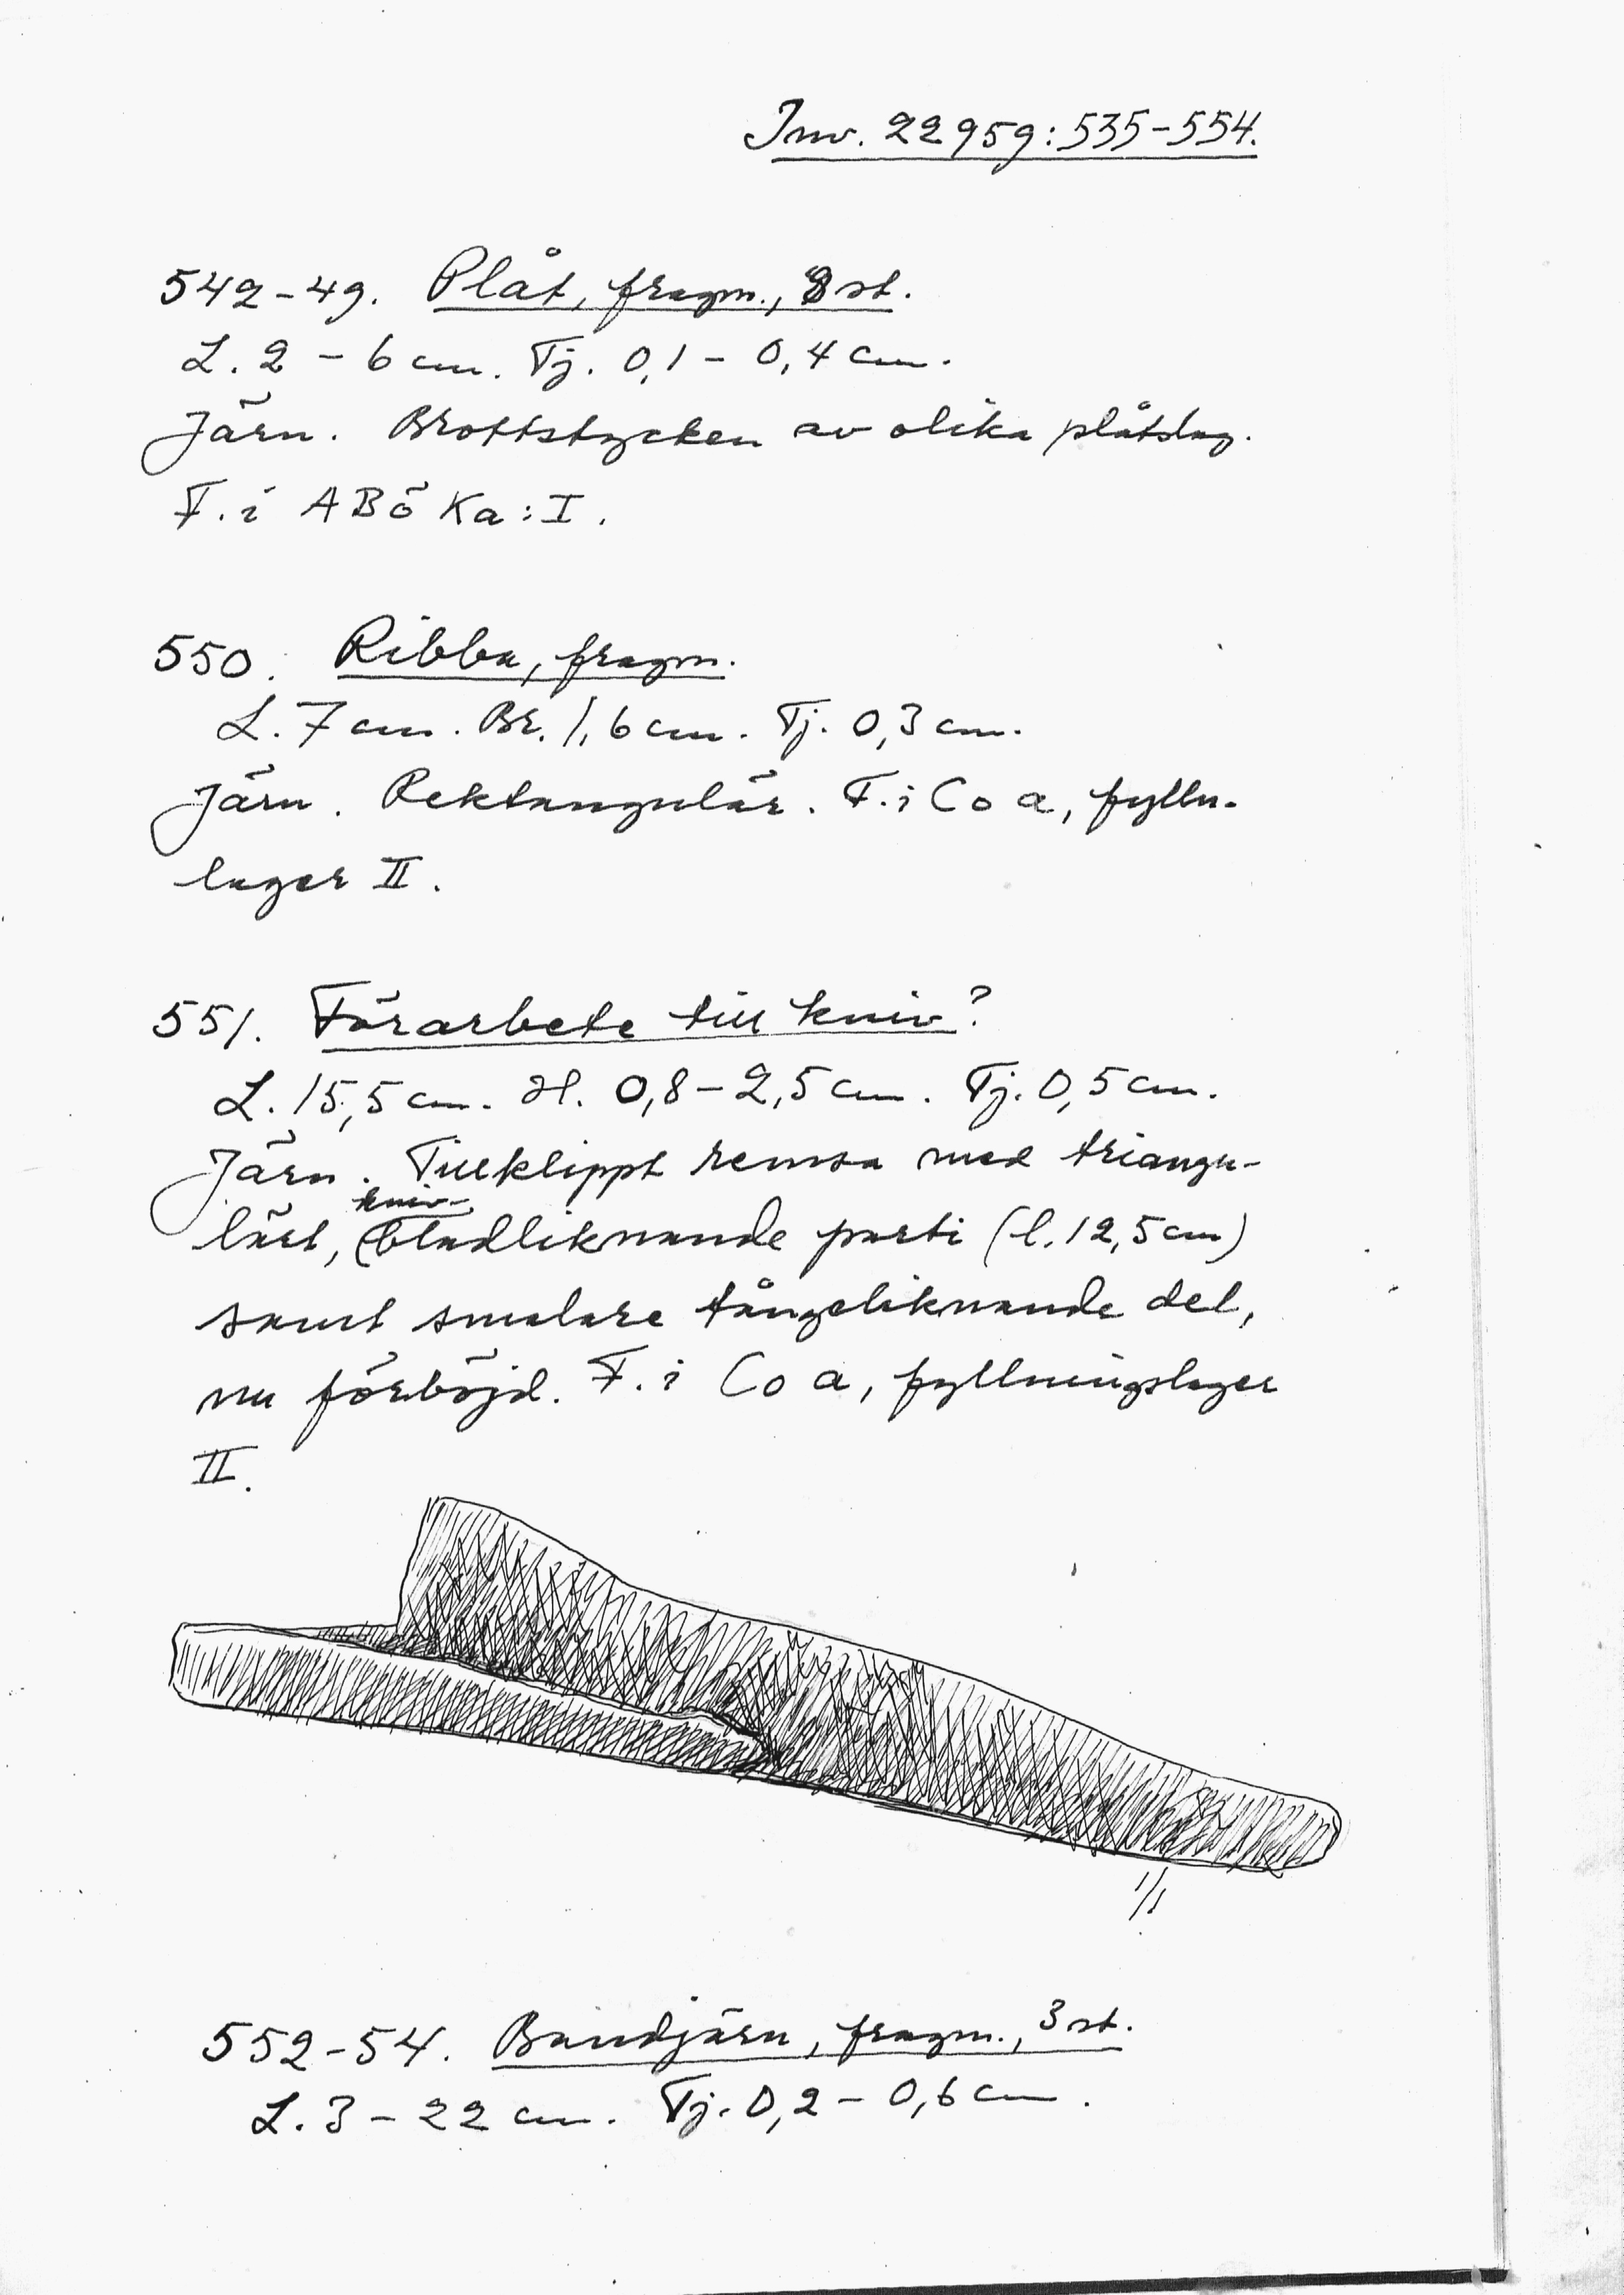 Inv. 22959:535-554.
542-49. Plåt, fragm., 8 st.
L. 2 - 6 cm. Tj. 0,1 - 0,4 cm.
Järn. Brottstycken av olika plåtslag.
F. i ABÖ Ka:I.
550. Ribba, fragm.
L. 7 cm. Br. 1,6 cm. Tj. 0,3 cm.
Järn. Rektangulär. F. i Co a, fylln.
lager II.
551. Förarbete till kniv?
L. 15,5 cm. H. 0,8 - 2,5 cm. Tj. 0,5 cm.
Järn. Tillklippt remsa med triangu-
kniv-
lärt, bladliknande parti (l. 12,5 cm)
samt smalare tångeliknande del,
nu förböjd. F. i Co a, fyllningslager
II.
1/1
552-54. Bandjärn, fragm., 3 st.
L. 3 - 22 cm. Tj. 0,2 - 0,6 cm.